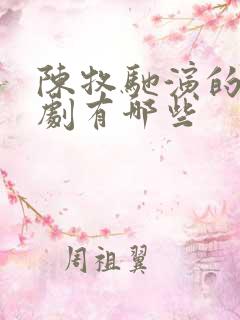 陳牧馳演的
劇有哪些
周祖翼